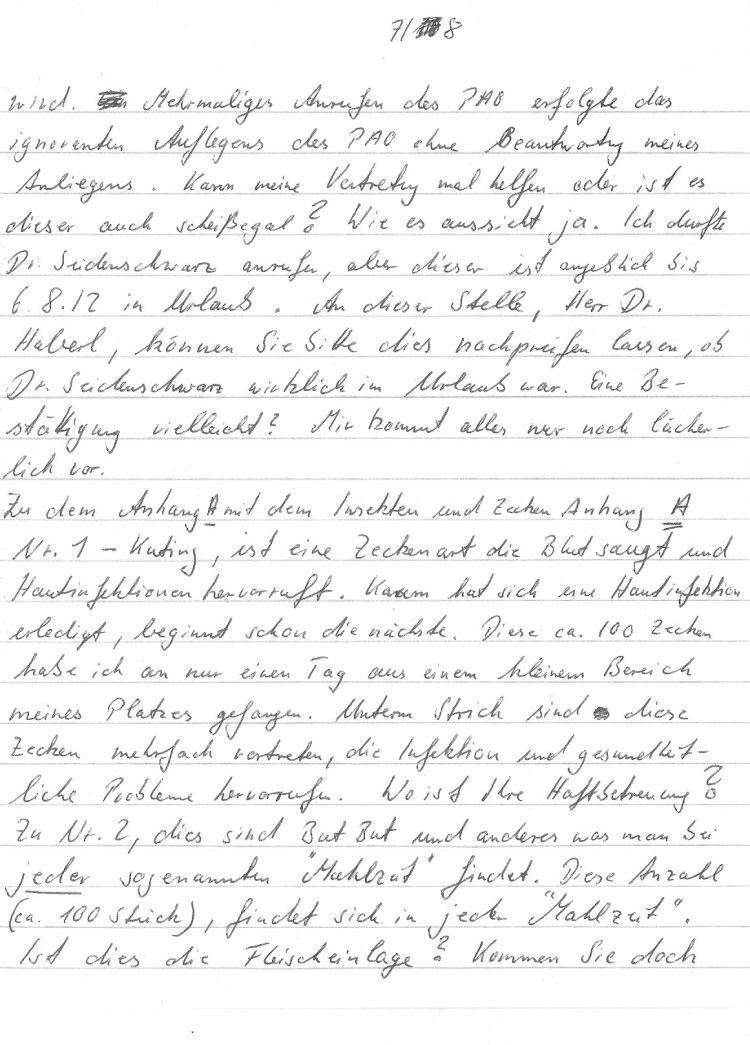 7/8
wird. Mehrmaliges Anrufen des PAO erfolgte das
ignoranten Auflegens des PAO ohne Beantwortg meines
Anliegens. Kann meine Vertretg mal helfen oder ist es
dieser auch scheißegal? Wie es aussieht ja. Ich durfte
Dr. Seidenschwarz anrufen, aber dieser ist angeblich bis
6.8.12 in Urlaub. An dieser Stelle, Herr Dr.
Haberl, können Sie bitte dies nachpreifen lassen, ob
Dr. Seidenschwarz wirklich im Urlaub war. Eine Be-
stätigung vielleicht? Mir kommt alles nur noch lächer-
lich vor.
Zu dem Anhang A mit dem Insekten und Zecken Anhang A
Nr. 1 - Kuting, ist eine Zeckenart die Blut saugt und
Hautinfektionen hervorruft. Kaum hat sich eine Hautinfektion
erledigt, beginnt schon die nächste. Diese ca. 100 Zecken
habe ich an nur einen Tag aus einem kleinem Bereich
meines Platzes gefangen. Unterm Strich sind diese
Zecken mehrfach vertreten, die Infektion und gesundheit-
liche Probleme hervorrufen. Wo ist Ihre Haftbetreuung?
Zu Nr. 2, dies sind But But und anderes was man bei
jeder sogenannten "Mahlzeit" findet. Diese Anzahl
(ca. 100 Stück), findet sich in jeder "Mahlzeit".
Ist dies die Fleischeinlage? Kommen Sie doch